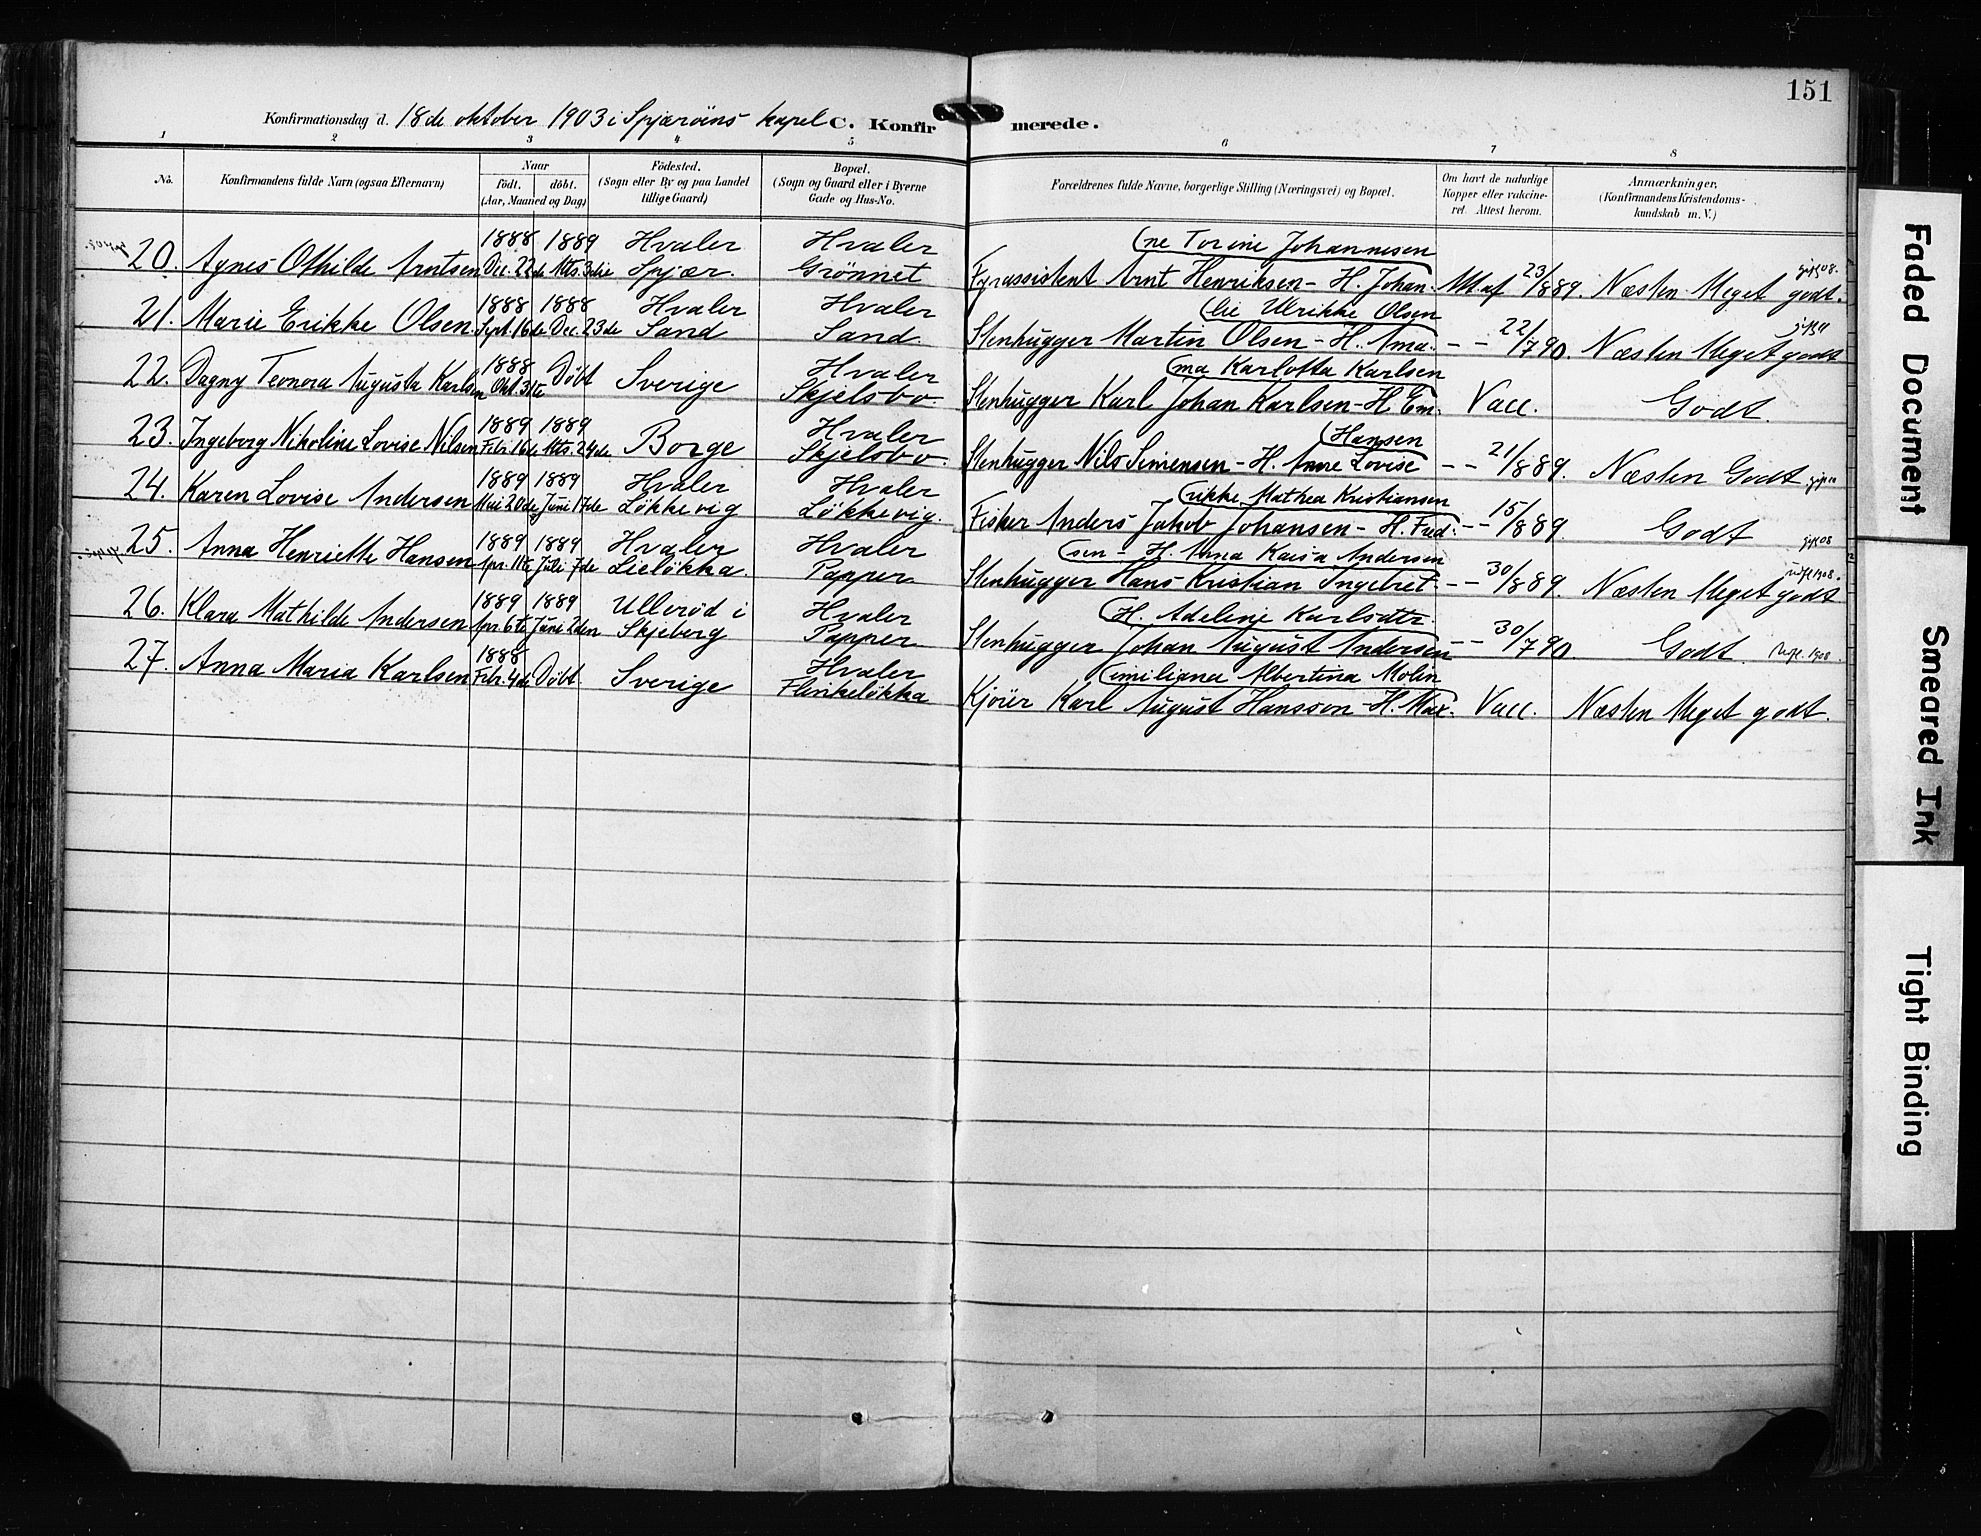 151
Konfirmationsdag d. 18de oktober 1903 i Spjærøens kapel C. Konfirmerede.
1 2 3 4 5 6 7 8
No. Konfirmandens fulde Navn (ogsaa Efternavn) Naar født. døbt. (Aar, Maaned og Dag) Födested. (Sogn eller By og paa Landet tillige Gaard) Bopæl. (Sogn og Gaard eller i Byerne Gade og Hus-No. Forældrenes fulde Navne, borgerlige Stilling (Næringsvei) og Bopæl. Om havt de naturlige Kopper eller vakcineret. Attest herom. Anmærkninger. (Konfirmandens Kristendomskundskab m. V.)
1888 1889 Hvaler Hvaler (ne Torine Johannesen
20. Agnes Othilde Arntsen Dec. 22de Mts. 3die Spjær. Grönnet Fyrassistent Arnt Henriksen - H. Johan. Att. af 23/8 89. Næsten Meget godt. gift 08.
1888 1888 Hvaler Hvaler (lie Ulrikke Olsen
21. Marie Erikke Olsen Sept. 16de Dec. 23de Sand Sand Stenhugger Martin Olsen - H. Ama. - - 22/7 90. Næsten Meget godt gift 11
1888 Hvaler (ma Karlotta Karlsen
22. Dagny Teonora Augusta Karlsen Okt. 31te Døbt Sverige Skjelsbo. Stenhugger Karl Johan Karlsen - H Em. Vacc. Godt.
1889 1889 Hvaler (Hansen
23. Ingeborg Nikoline Lovise Nilsen Febr. 16de Mts. 24de Borge Skjelsbo. Stenhugger Nils Simensen - H. Anne Lovise - - 21/8 89. Næsten Godt
1889 1889 Hvaler Hvaler (rikke Mathea Kristiansen
24. Karen Lovise Andersen Mai 20de Juni 17de Løkkevig Løkkevig. Fisker Anders Jakob Johansen - H. Fred. - - 15/8 89. Godt gift 08
1889 1889 Hvaler Hvaler (sen - H. Anna Kaisa Andersen
25. Anna Henriette Hansen Apr. 11te Juli 7de Lieløkka. Papper Stenhugger Hans Kristian Ingebret. - - 30/8 89. Næsten Meget godt udfl. 1908.
1889 1889 Ullerød i Hvaler (H. Adeline Karlsdtr.
26. Klara Mathilde Andersen Apr. 6te Juni 2den Skjeberg Papper Stenhugger Johan August Andersen - - 30/7 90. Godt. Utfl. 1908.
1888 Hvaler (imiliana Albertina Molin
27. Anna Maria Karlsen Febr. 4de Døbt. Sverige Flinkeløkka Kjører Karl August Hansson - H. Max. Vacc. Næsten Meget godt.
Faded Document
Smeared Ink
Tight Binding